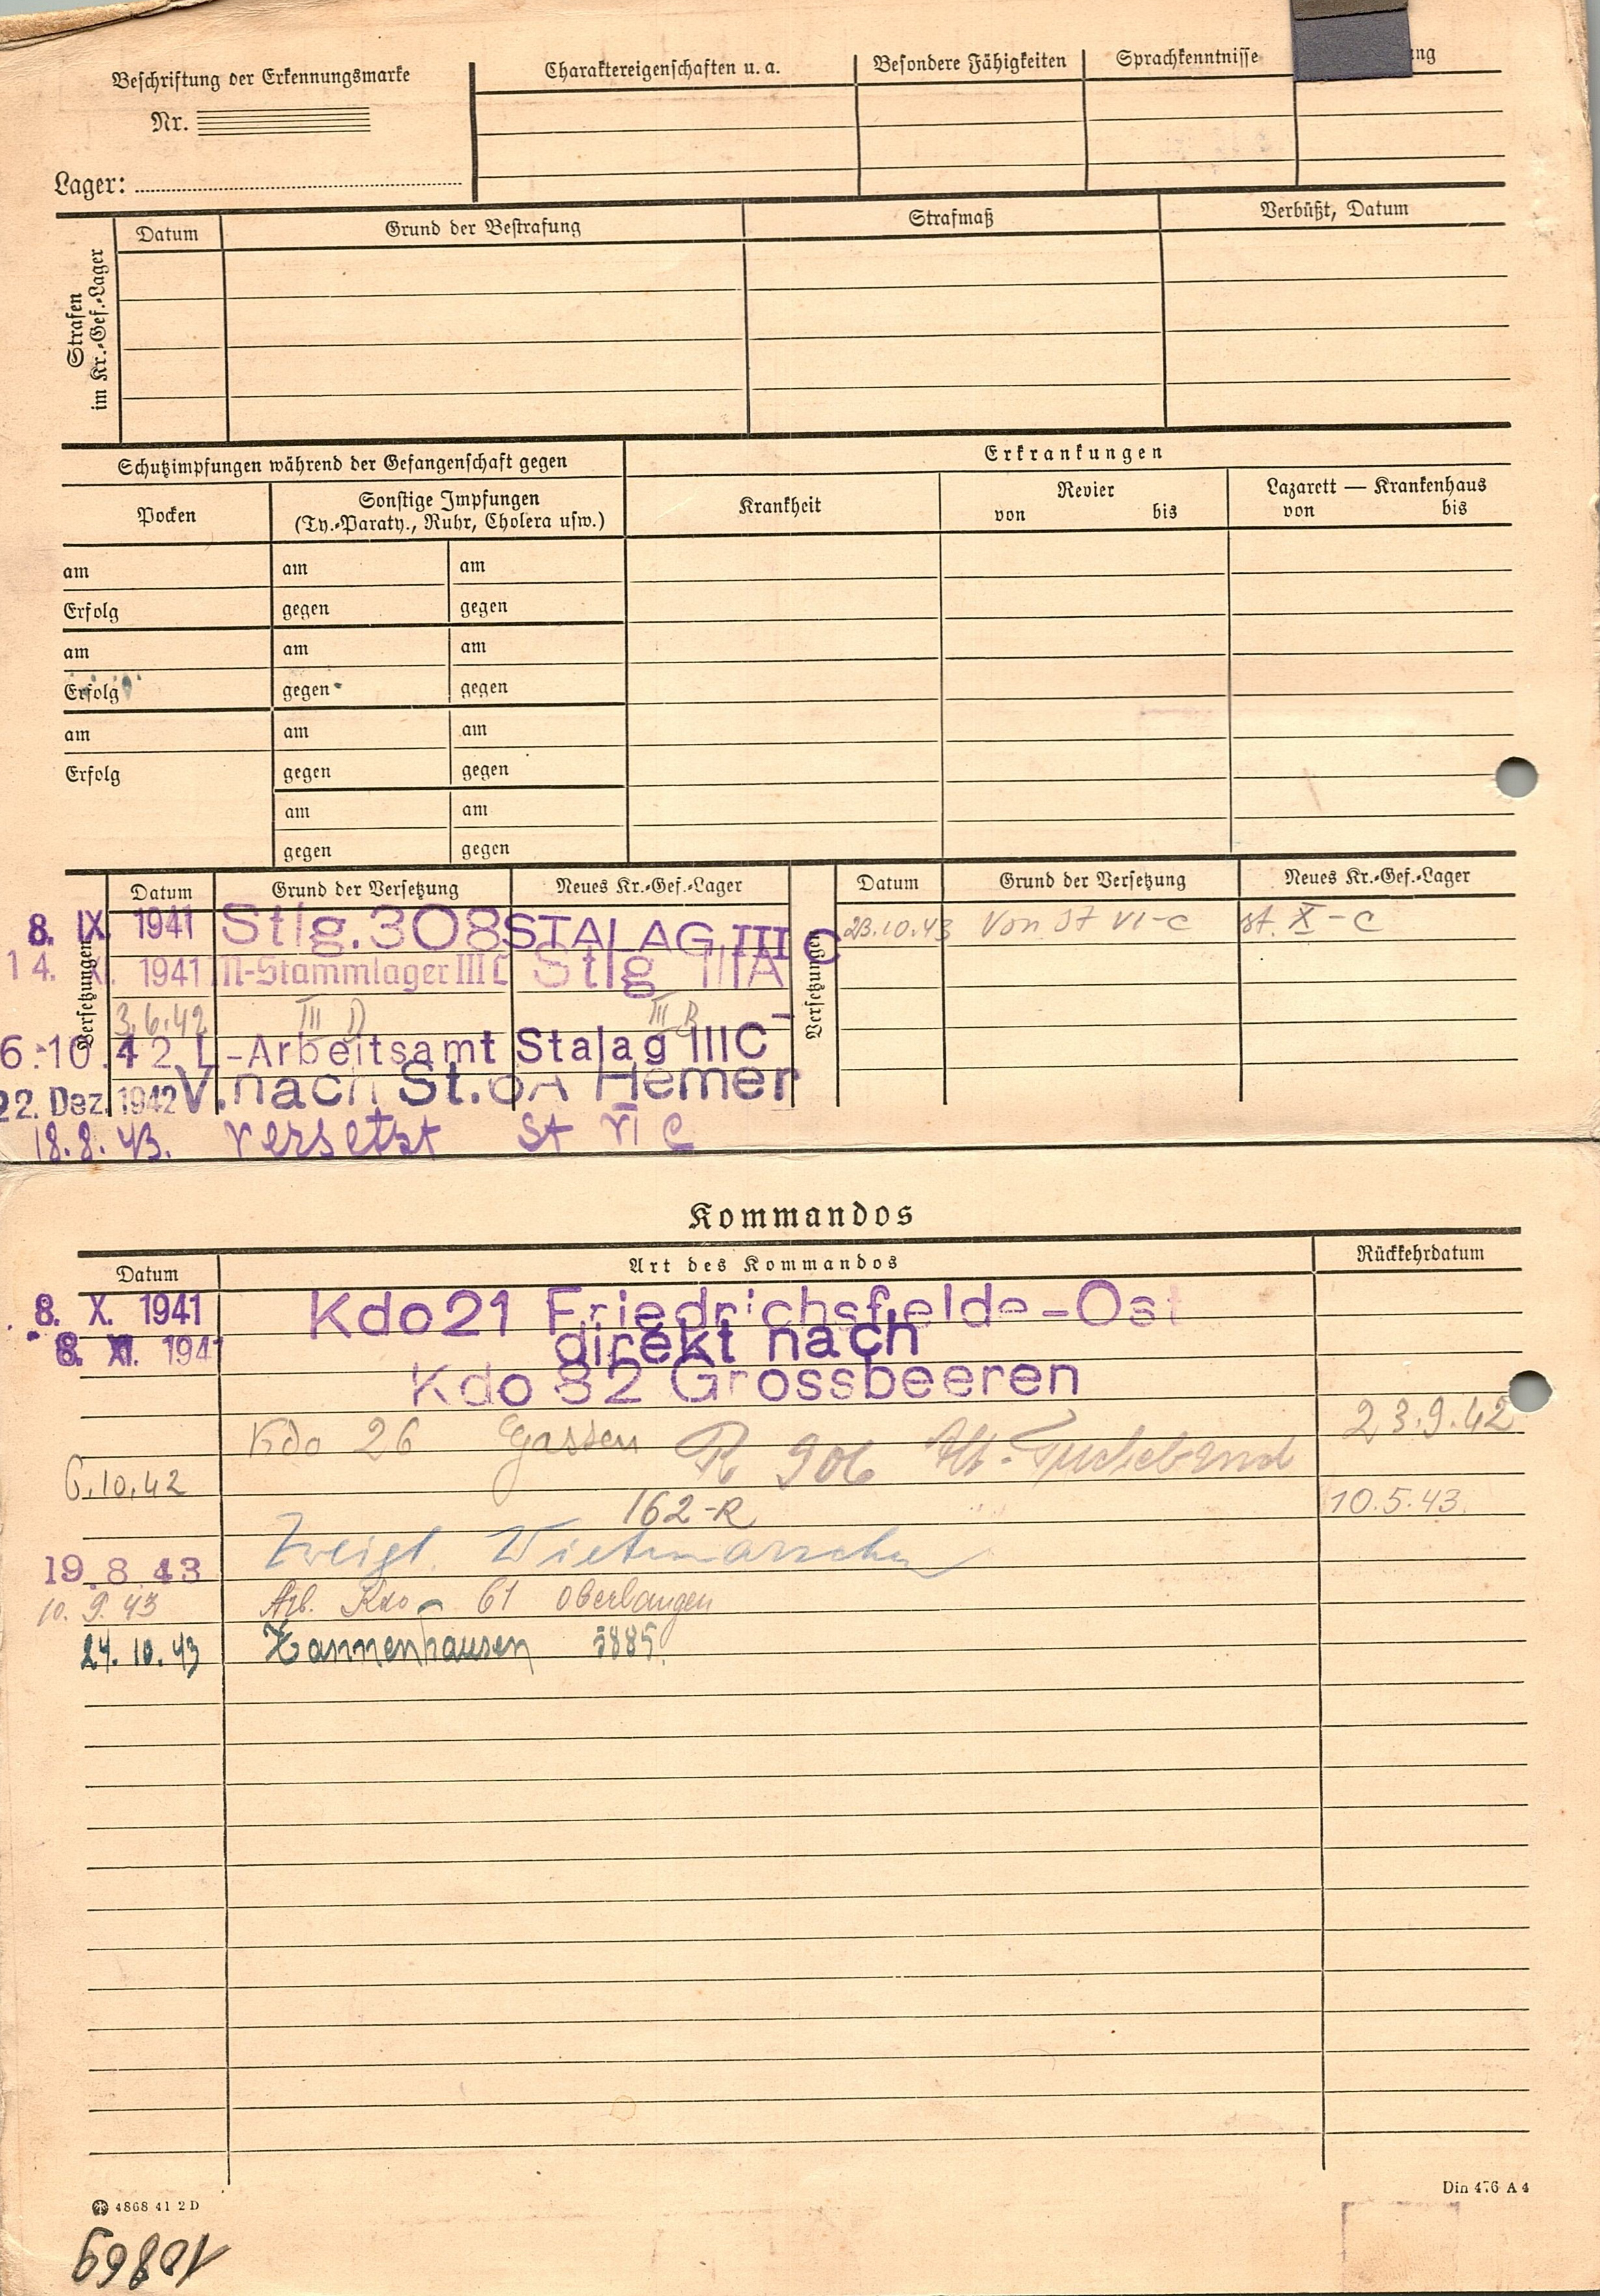 Beschriftung der Erkennungsmarke
Nr.
Lager:
Charaktereigenschaften u. a.
Besondere Fähigkeiten
Sprachkenntnisse
ng
Strafen
im Kr.-Gef.-Lager
Datum
Grund der Bestrafung
Strafmaß
Verbüßt, Datum
Schutzimpfungen während der Gefangenschaft gegen
Erkrankungen
Pocken
Sonstige Impfungen
(Ty.-Paraty., Ruhr, Cholera usw.)
Krankheit
Revier
von bis
Lazarett — Krankenhaus
von bis
am am am
Erfolg gegen gegen
am am am
Erfolg gegen gegen
am am am
Erfolg gegen gegen
am am
gegen gegen
Versetzungen
Datum Grund der Versetzung Neues Kr.-Gef.-Lager
8. IX. 1941 Stlg. 308 STALAG III C
14. XI. 1941 M-Stammlager III C Stlg IIIA
3.6.42 III D III B
6.10.42 L-Arbeitsamt Stalag IIIC
22. Dez. 1942 V. nach St. 6A Hemer
18.8.43. versetzt St VI C
Versetzungen
Datum Grund der Versetzung Neues Kr.-Gef.-Lager
23.10.43 Von St VI-C st. X-C
Kommandos
Datum Art des Kommandos Rückkehrdatum
8. X. 1941 Kdo 21 Friedrichsfelde-Ost
8. XI. 1941 direkt nach
Kdo 32 Grossbeeren
Kdo 26 Gassen 23.9.42
6.10.42 R 906 Alt-Tucheband
162-R 10.5.43.
19.8.43 Zweigl. Wietmarschen
10.9.43 Arb. Kdo - 61 Oberlangen
24.10.43 Tannenhausen 5885.
4868 41 2 D
Din 476 A 4
10869